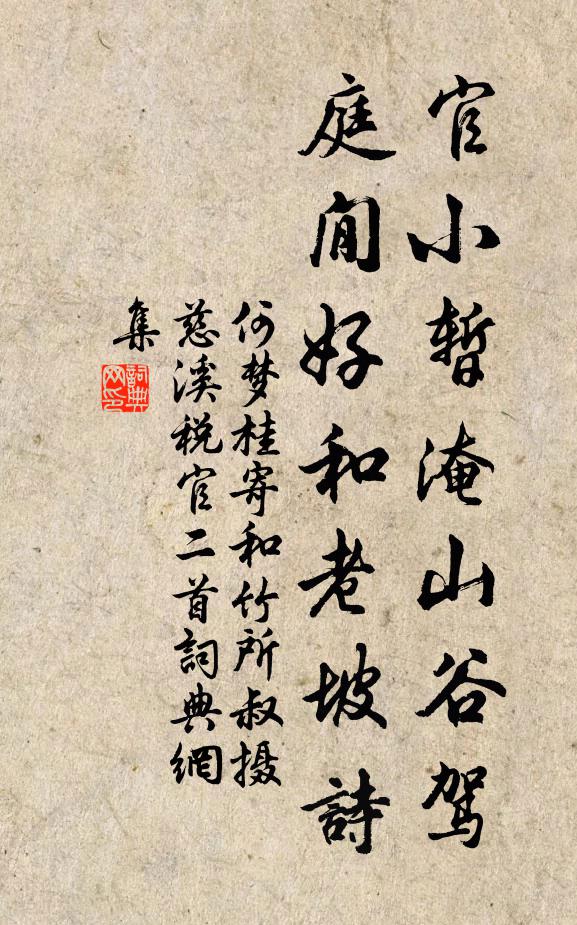 官小暫淹山谷駕
庭閒好和老坡詩
何梦桂寄和竹所叔摄
慈溪税官二首詞典網
集
詞典网印